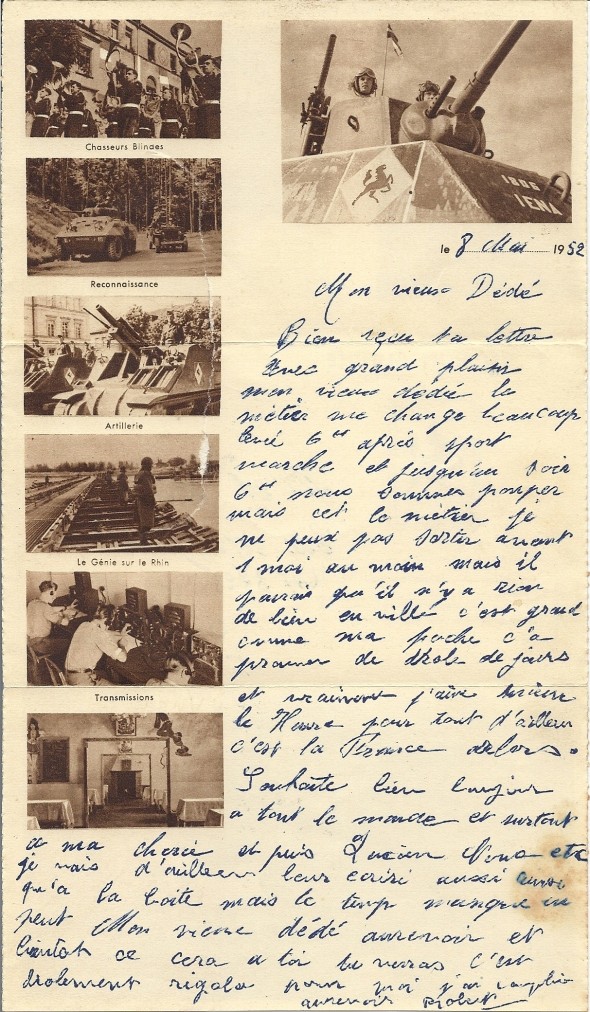 Chasseurs Blindes
Reconnaissance
Artillerie
Le Génie sur le Rhin
Transmissions
1806
IENA
le 8 Mai 1952
Mon vieux Dédé
Bien reçu ta lettre
avec grand plaisir
mon vieux dédé le
métier me change beaucoup
levé 6 H après sport
marche et jusqu'au soir
6 H nous sommes pomper
mais cet le métier je
ne peux pas sortir avant
1 moi au moin mais il
parais qu'il n'y a rien
de bien en ville c'est grand
comme ma poche c'a
promer de drole de jours
et vraiment j'aime mieux
le Havre pour tout d'ailleur
c'est la France alors.
Souhaite bien bonjour
a tout le monde et surtout
a ma et puis Lucien Nono etc
je vais d'ailleur leur ecrire aussi ainsi
qu'a la boite mais le temp manque un
peut Mon vieux dédé aurevoir et
bientot ce cera a toi tu verras c'est
drolement rigolo pour moi j'ai
aurevoir Robert